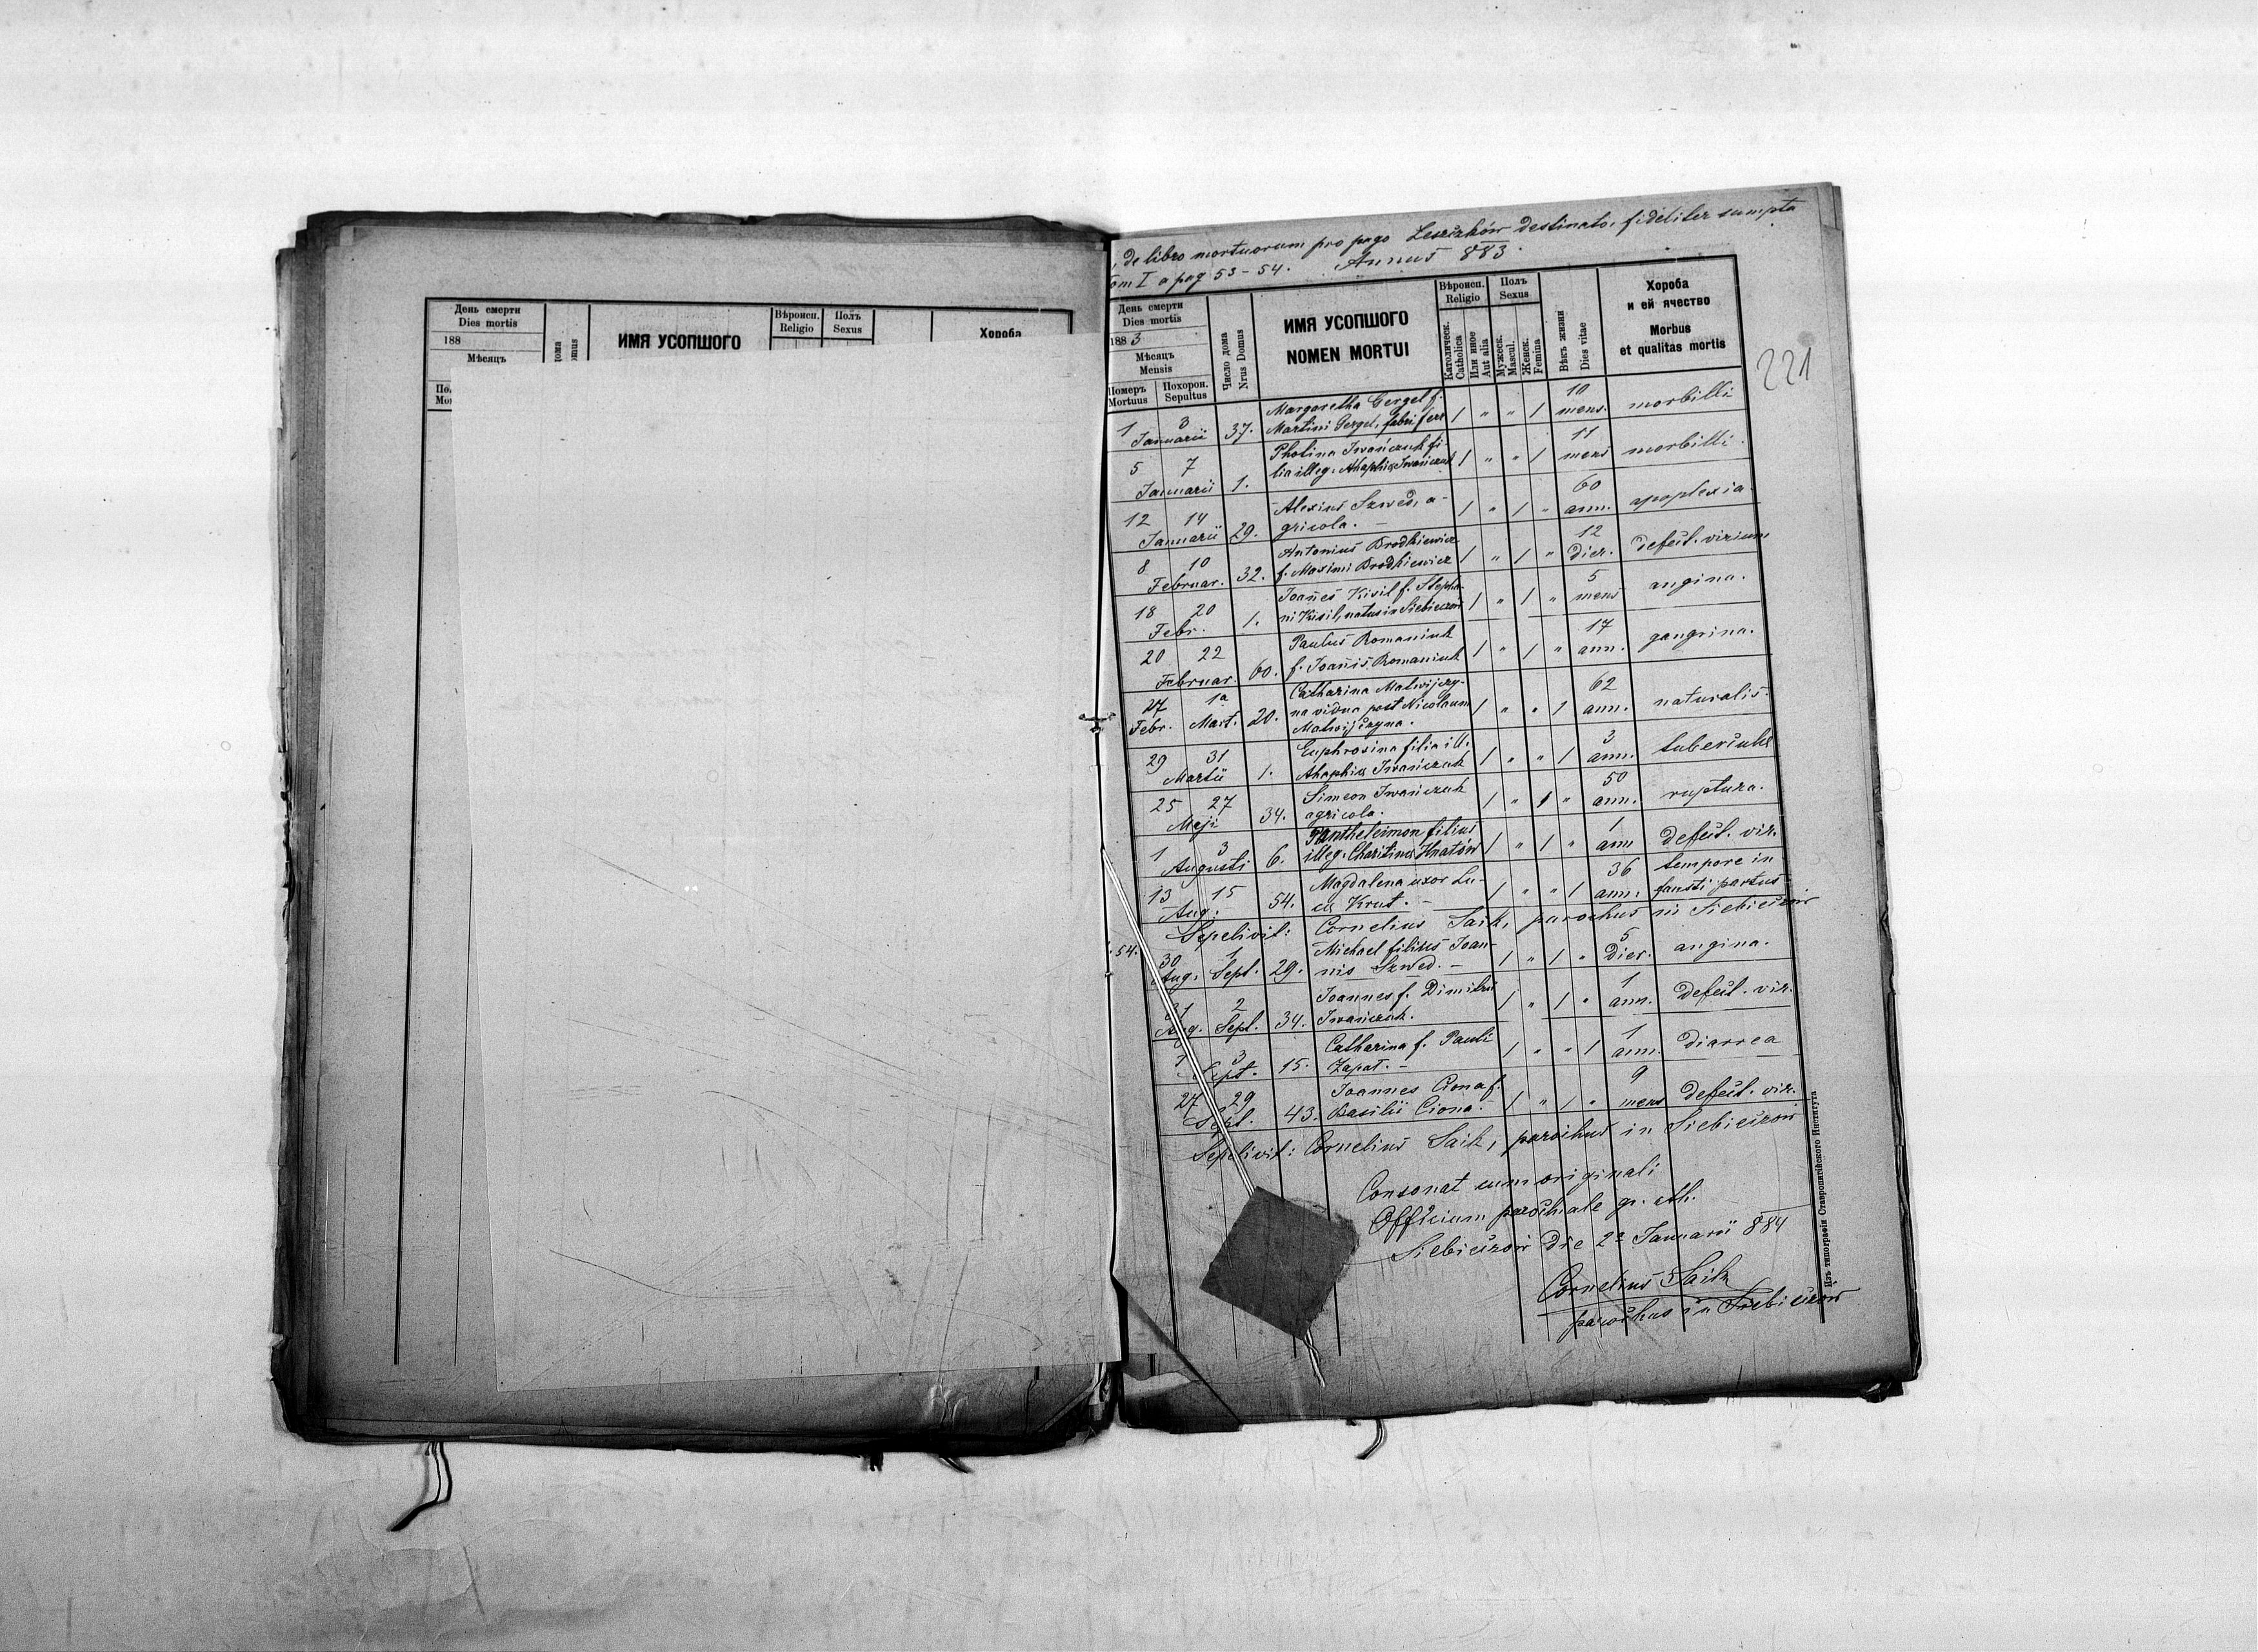 День смерти
Dies mortis
188
Мѣсяцъ
ИМЯ УСОПШОГО
Вѣроисп.
Religio
Полъ
Sexus
Хороба
de libro mortuorum pro pago Leszczków destinato, fideliter sumpta
Tom I a pag 53-54. Annus 883.
День смерти
Dies mortis
1883
Мѣсяцъ
Mensis
Номеръ
Mortuus
Похорон.
Sepultus
Число дома
Nrus Domus
ИМЯ УСОПШОГО
NOMEN MORTUI
Вѣроисп.
Religio
Католическ.
Catholica
Или иное
Aut alia
Полъ
Sexus
Мужеск.
Mascul.
Женск.
Femina
Вѣкъ жизни
Dies vitae
Хороба
и ей ячество
Morbus
et qualitas mortis
221
1 3 Januarii 37. Margaretha Gergel f. 1 " " 1 10 mens. morbilli
Martini Gergel, fabri ferr
5 7 Januarii 1. Photina Iwańczuk fi- 1 " " 1 11 mens morbilli.
lia illeg. Ahaphiæ Iwańczuk
12 14 Januarii 29. Alexius Szwed, a- 1 " 1 " 60 ann. apoplexia.
gricola. –
8 10 Februar. 32. Antonius Brodkiewicz 1 " 1 " 12 dier. defect. virium
f. Maximi Brodkiewicz
18 20 Febr. 1. Joañes Kisil f. Stepha- 1 " 1 " 5 mens angina.
ni Kisil, natus in Siebieczów
20 22 Februar. 60. Paulus Romaniuk 1 " 1 " 17 ann. gangrina.
f. Joañis Romaniuk
27 Febr. 1a Mart. 20. Catharina Matwijczy- 1 " " 1 62 ann. naturalis.
na vidua post Nicolaum
Matwijczyna.
29 31 Martii 1. Euphrosina filia ill. 1 " " 1 3 ann. tubercula
Ahaphiæ Iwańczuk
25 27 Maji 34. Simeon Iwańczuk 1 " 1 " 50 ann. ruptura.
agricola.
1 3 Augusti 6. Pantheleimon filius 1 " 1 " 1 ann defect. vir.
illeg. Charitinæ Hnatów
13 15 Aug. 54. Magdalena uxor Lu- 1 " " 1 36 ann. tempore in
cæ Krut. – fausti partus
Sepelivit: Cornelius Saik, parochus in Siebieczów
54.
30 Aug. 1 Sept. 29. Michael filius Joan- 1 " 1 " 5 dier. angina.
nis Szwed. –
31 Aug. 2 Sept. 34. Joannes f. Dimitrii 1 " 1 " 1 ann. defect. vir.
Iwańczuk.
1 3 Sept. 15. Catharina f. Pauli 1 " " 1 1 ann. diarrea
Zapat. –
27 29 Sept. 43. Joannes Ciona f. 1 " 1 " 9 mens defect. vir.
Basilii Ciona.
Sepelivit: Cornelius Saik, parochus in Siebieczów
Consonat cum originali
Officium parochiale gr. cth.
Siebieczów die 2a Januarii 884
Cornelius Saik
parochus in Siebieczów
Изъ типографіи Ставропигійского Института